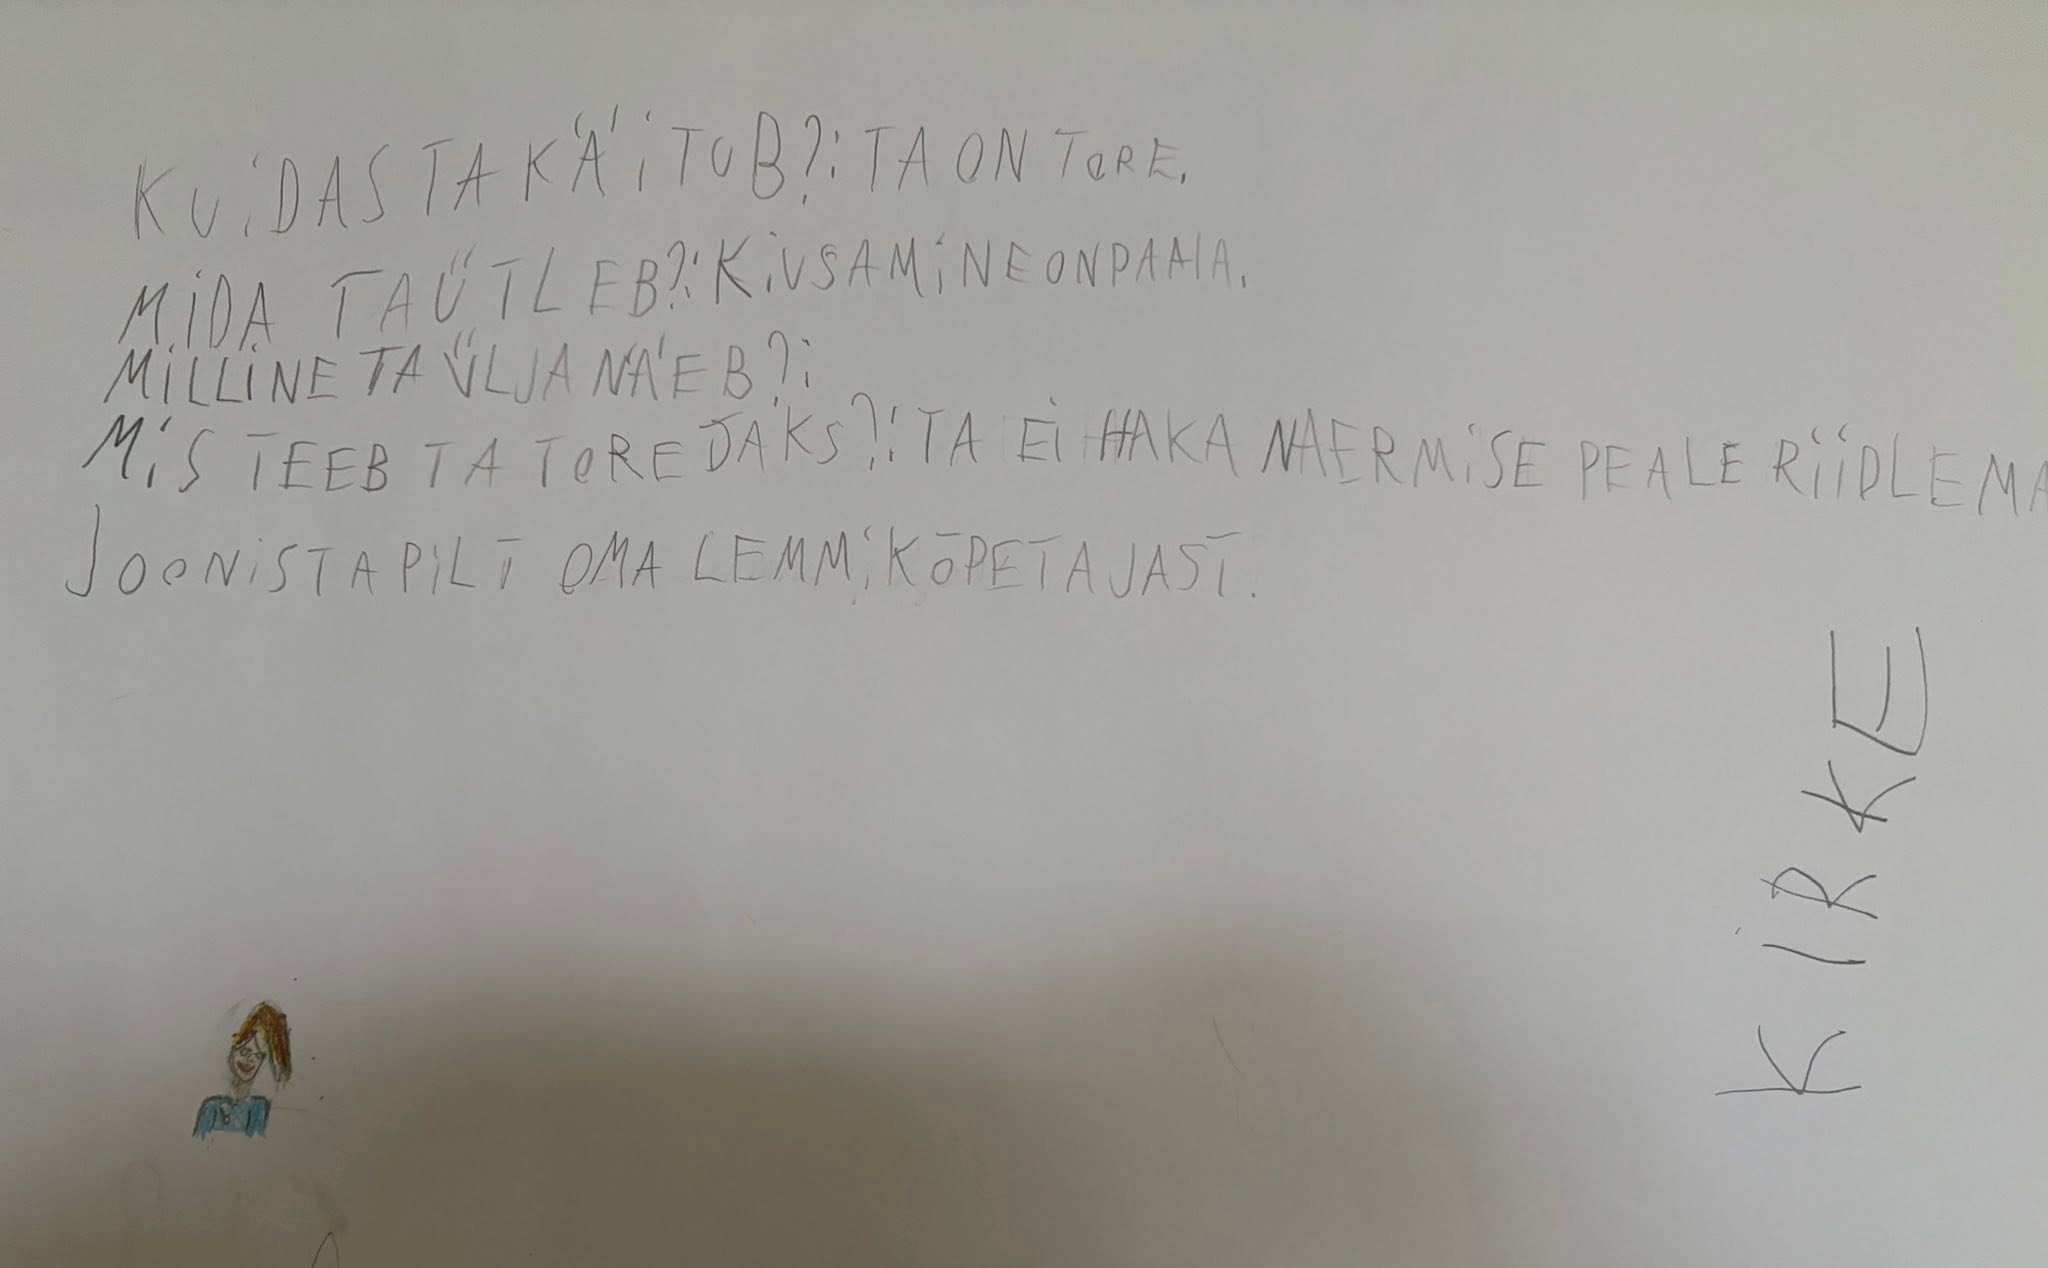 KUiDAS TA KÄiTUB?: TA ON TORE.
MiDA TA ÜTLEB?: KiUSAMiNE ON PAHA.
MiLLiNE TA ÜLJA NÄEB?:
MiS TEEB TA TOREDAKS?: TA Ei HAKA NAERMiSE PEALE RiiDLEMA
JOONiSTA PiLT OMA LEMMiKÕPETAJAST.
KiRKE